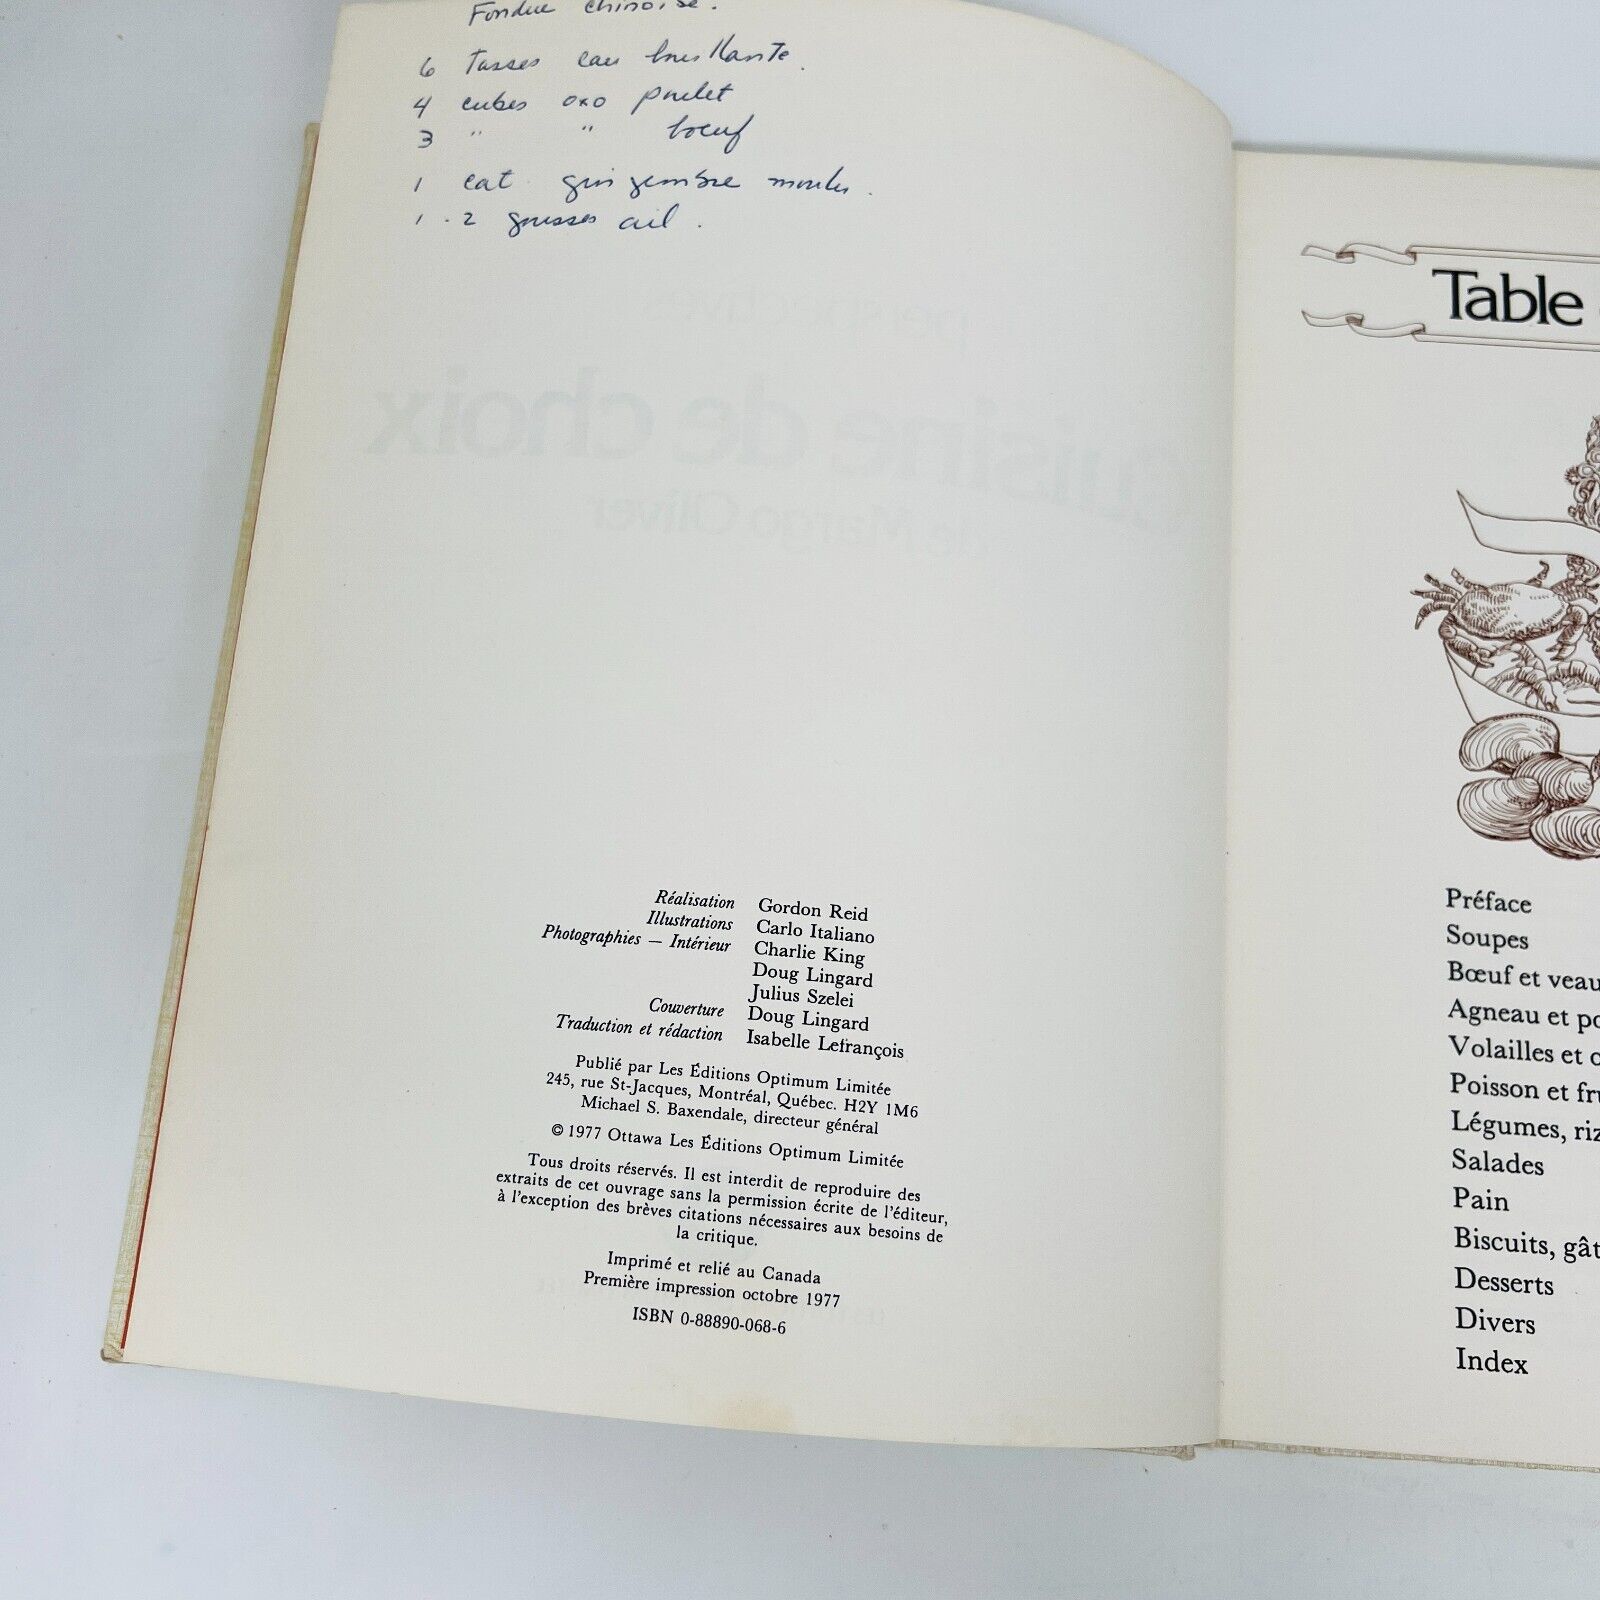 Fondue chinoise.
6 tasses eau bouillante.
4 cubes oxo poulet
3 " " boeuf
1 cat gingembre moulu.
1-2 gousses ail.
cuisine de choix
de Margo Oliver
Réalisation Gordon Reid
Illustrations Carlo Italiano
Photographies — Intérieur Charlie King
Doug Lingard
Julius Szelei
Couverture Doug Lingard
Traduction et rédaction Isabelle Lefrançois
Publié par Les Éditions Optimum Limitée
245, rue St-Jacques, Montréal, Québec. H2Y 1M6
Michael S. Baxendale, directeur général
© 1977 Ottawa Les Éditions Optimum Limitée
Tous droits réservés. Il est interdit de reproduire des
extraits de cet ouvrage sans la permission écrite de l'éditeur,
à l'exception des brèves citations nécessaires aux besoins de
la critique.
Imprimé et relié au Canada
Première impression octobre 1977
ISBN 0-88890-068-6
Table
Préface
Soupes
Bœuf et veau
Agneau et po
Volailles et
Poisson et fru
Légumes, riz
Salades
Pain
Biscuits, gât
Desserts
Divers
Index